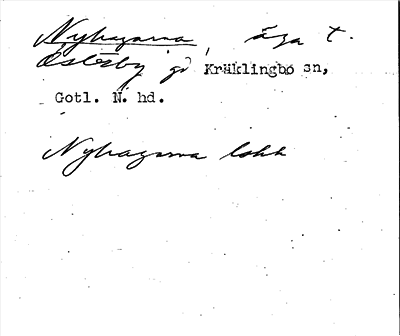 Nyhagarna, äga t.
Österby gd Kräklingbo sn,
Gotl. N. hd.
Nyhagarna lokk